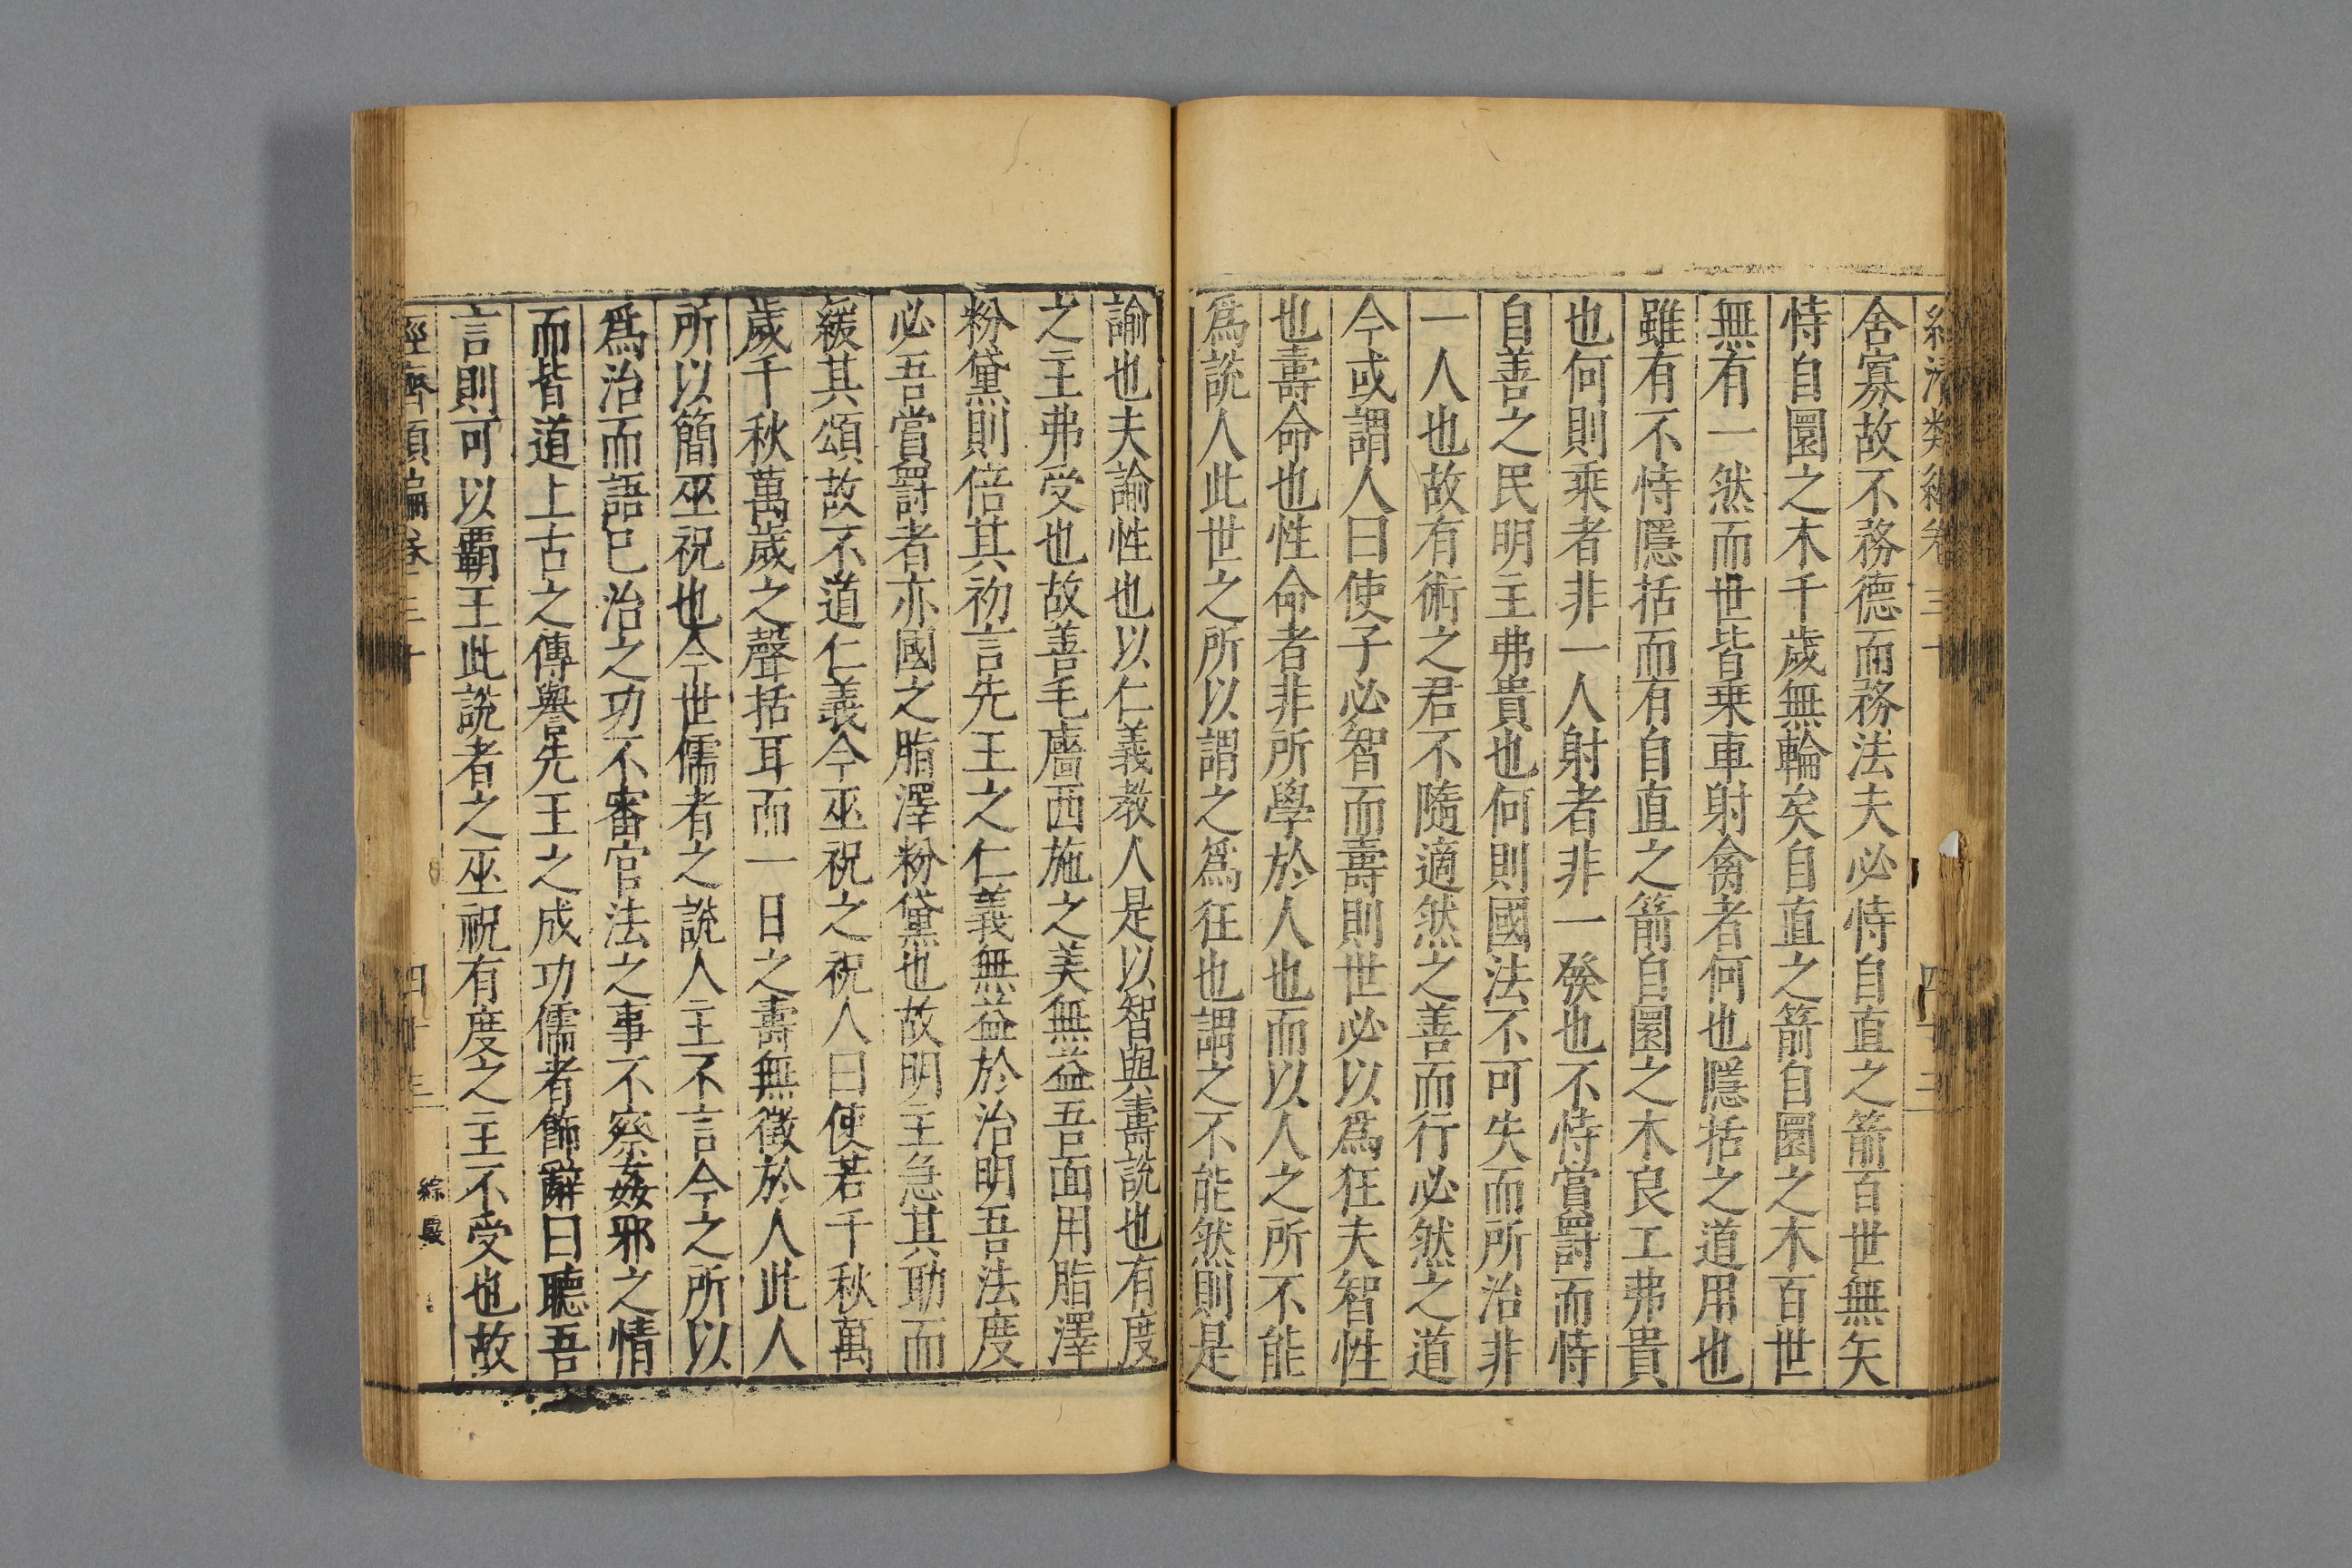 舍寡故不務德而務法夫必恃自直之箭百世無矢
恃自圜之木千歲無輪矣自直之箭自圜之木百世
無有一然而世皆乗車射禽者何也隱括之道用也
雖有不恃隱括而有自直之箭自圜之木良工弗貴
也何則乘者非一人射者非一發也不恃賞罰而恃
自善之民明主弗貴也何則國法不可失而所治非
一人也故有術之君不隨適然之善而行必然之道
今或謂人曰使子必智而壽則世必以爲狂夫智性
也壽命也性命者非所學於人也而以人之所不能
爲說人此世之所以謂之爲狂也謂之不能然則是
諭也夫諭性也以仁義教人是以智與壽說也有度
之主弗受也故善毛廧西施之美無益吾面用脂澤
粉黛則倍其初言先王之仁義無益於治明吾法度
必吾賞罰者亦國之脂澤粉黛也故明主急其助而
緩其頌故不道仁義今巫祝之祝人曰使若千秋萬
歲千秋萬歲之聲括耳而一日之壽無徵於人此人
所以簡巫祝也今世儒者之說人主不言今之所以
爲治而語已治之功不審官法之事不察姦邪之情
而皆道上古之傳譽先王之成功儒者飾辭曰聽吾
言則可以覇王此說者之巫祝有度之主不受也故
經濟類編卷三十 四十三